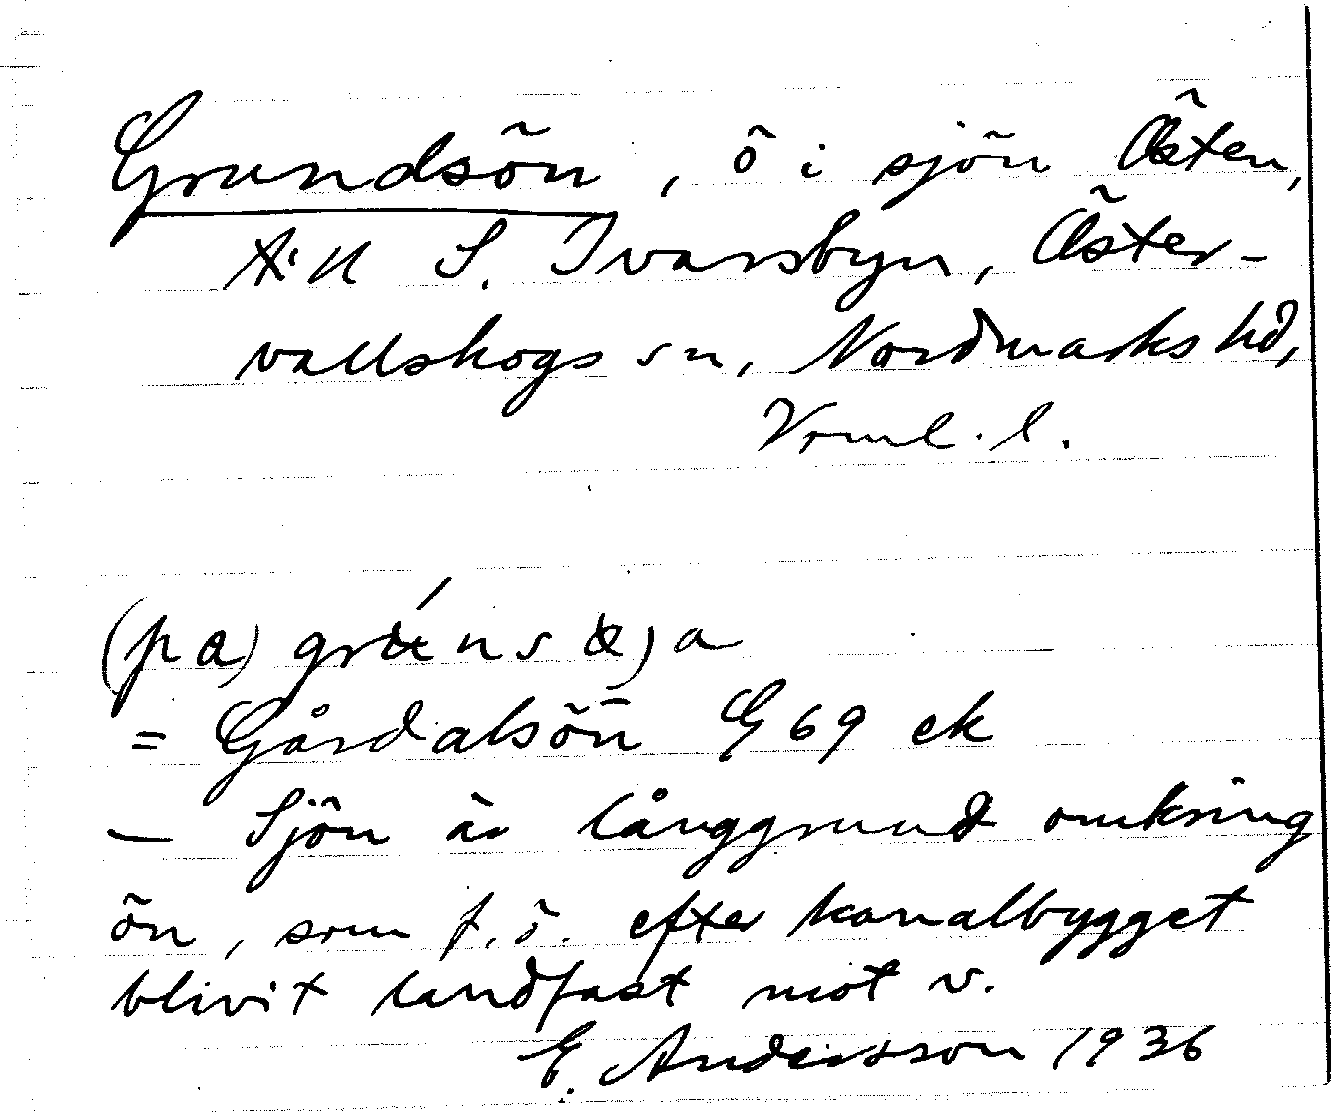 Grundsön, ö i sjön Östen,
t. S. Ivarsbyn, Öster-
vallskogs sn, Nordmarks hd,
Vrml. l.
(pa)
= Gårdalsön G 69 ek
— Sjön är långgrund omkring
ön, som f. ö. efter kanalbygget
blivit landfast mot v.
E. Andersson 1936